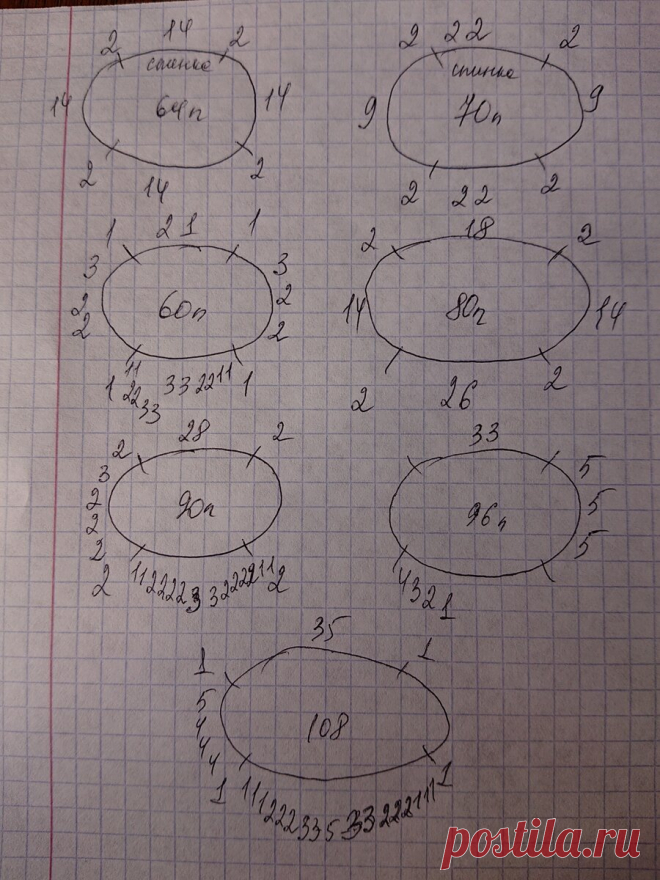 14
2 2
спинка
14 64п 14
2 2
14
22
2 2
спинка
9 70п 9
2 2
22
21
1 1
3 3
2 60п 2
2 2
1 11 22 33 33 22 11 1
18
2 2
14 80п 14
2 2
26
28
2 2
3
2 90п
2
2
2 11 2222 3 3 2222 11 2
33
5
96п 5
5
4321
35
1 1
5
4 108
4
4
1 111 222 33 5 33 222 111 1
postila.ru